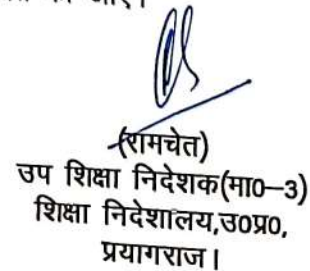 जाए।
(रामचेत)
उप शिक्षा निदेशक(मा0–3)
शिक्षा निदेशालय,उ0प्र0,
प्रयागराज।